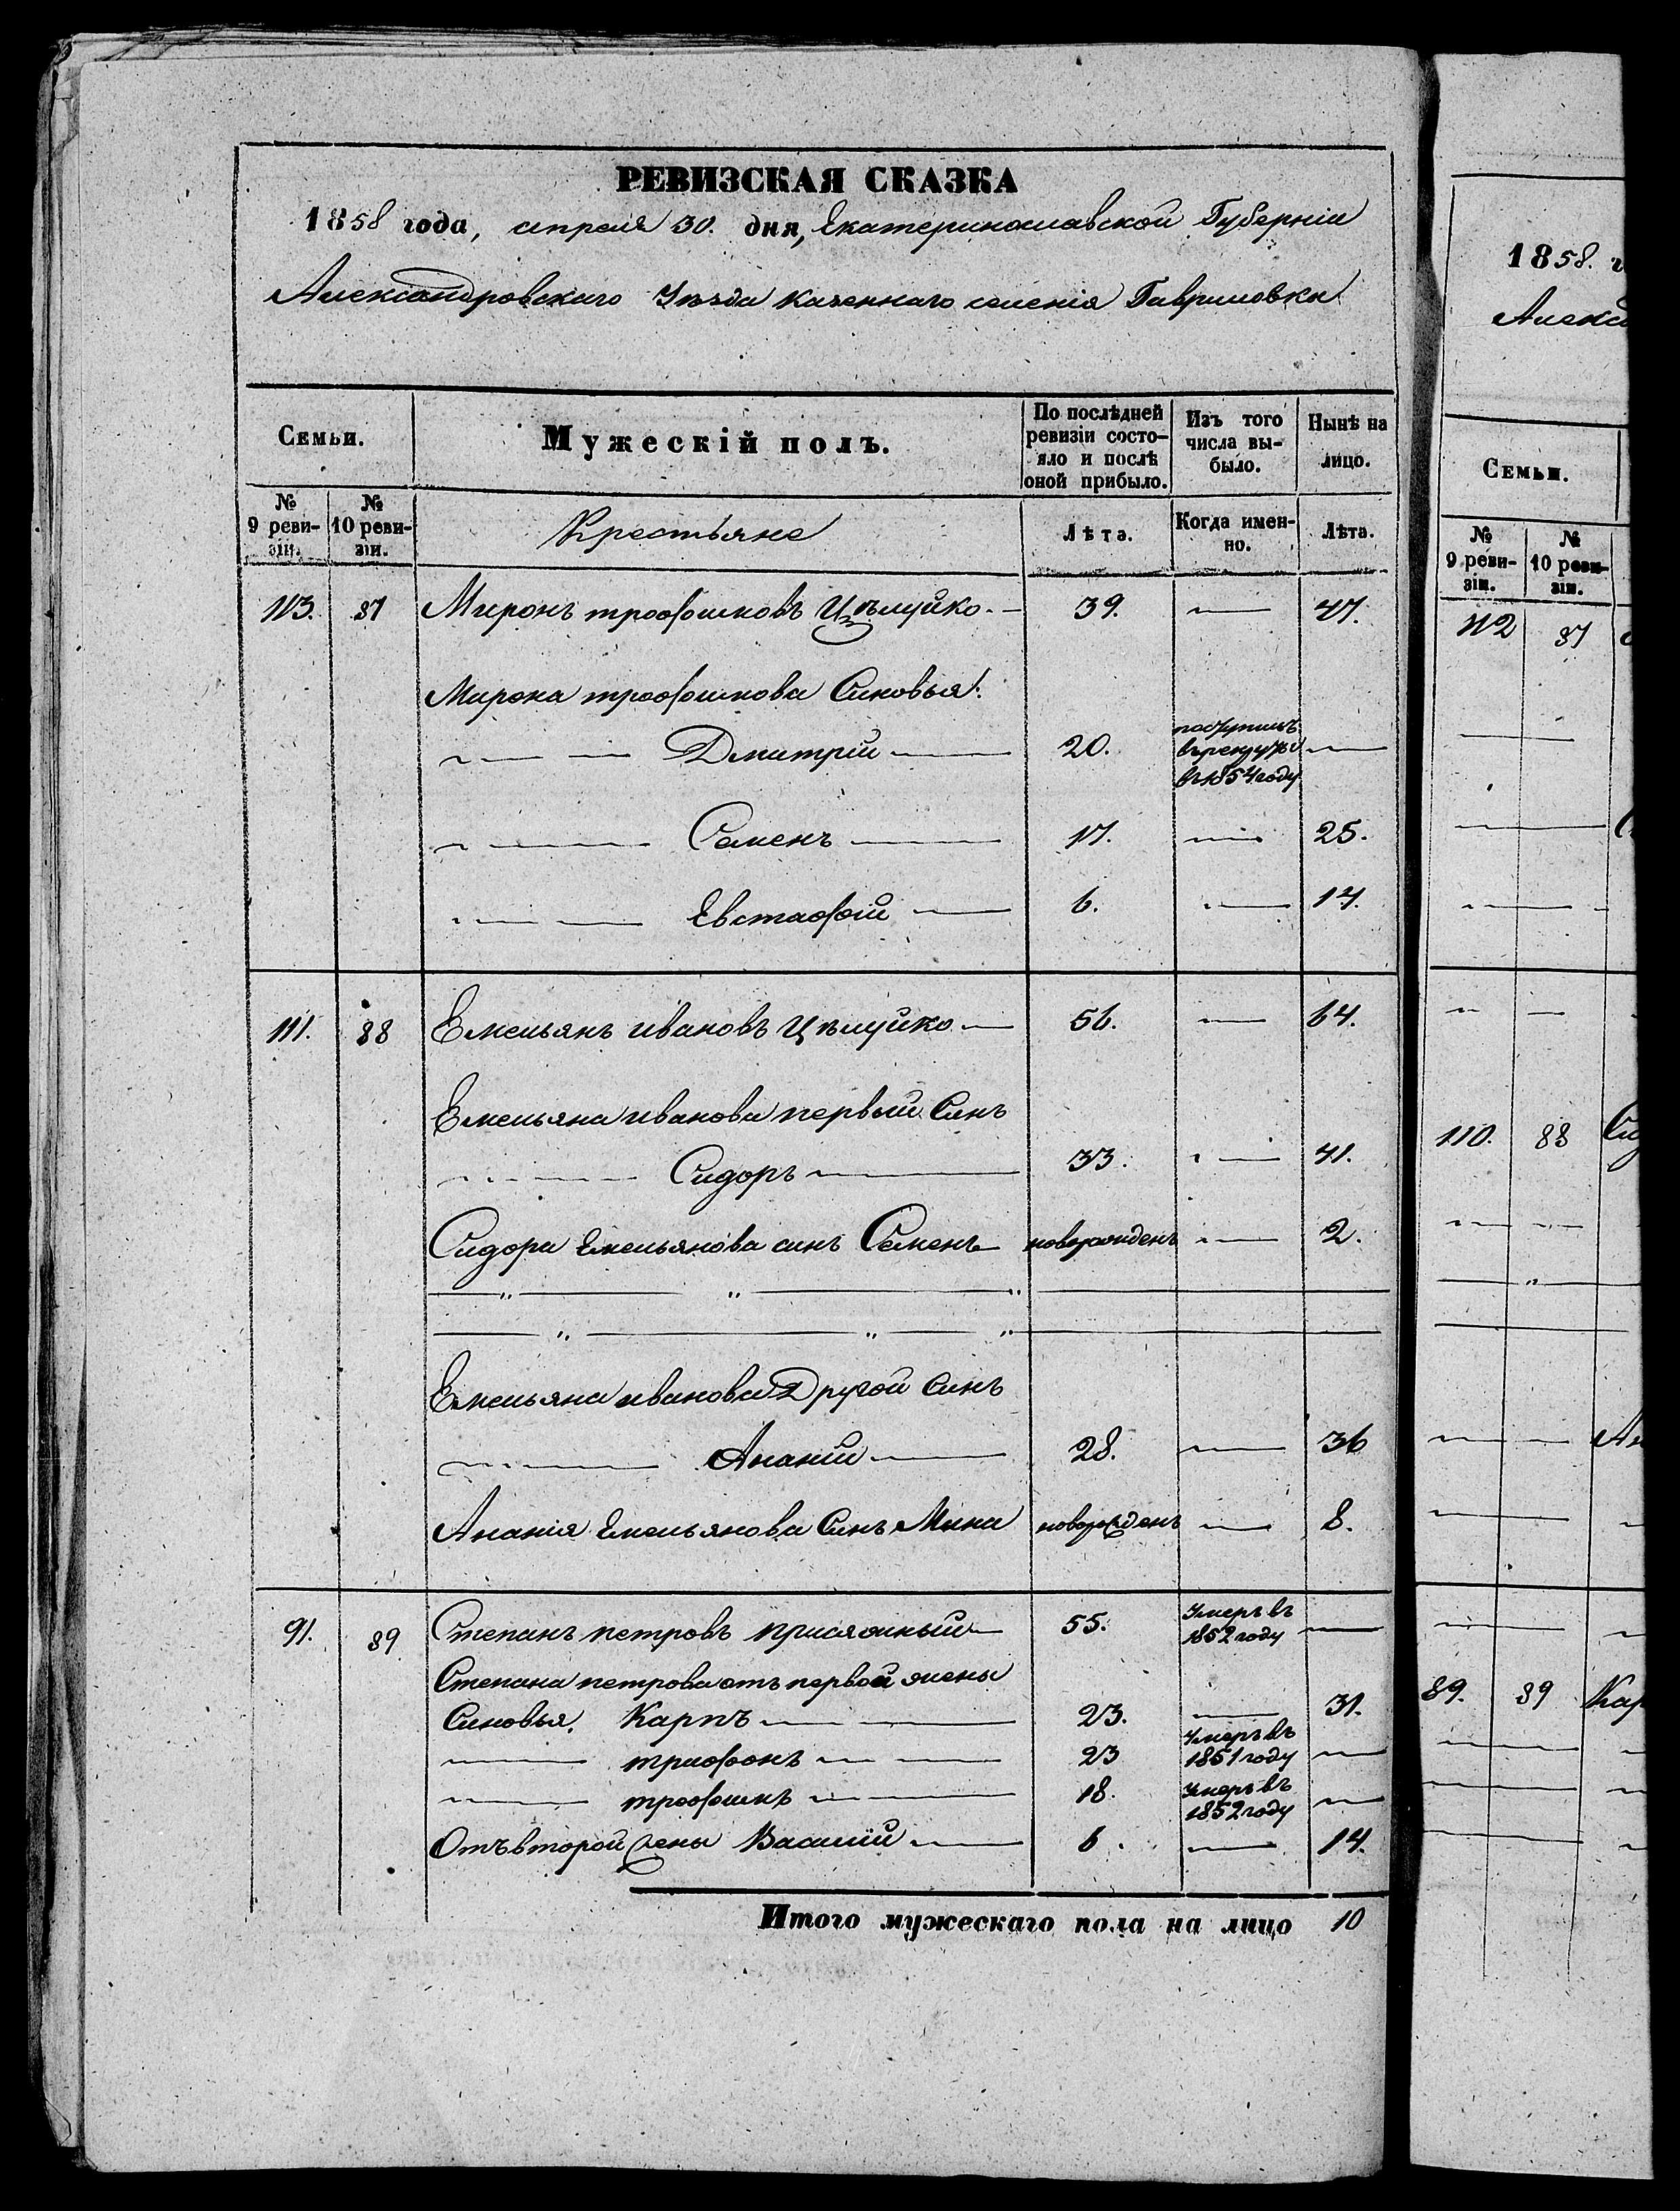 РЕВИЗСКАЯ СКАЗКА
1858 года, апреля 30. дня, Екатеринославской Губерніи
Александровскаго Уѣзда казеннаго селенія Гавриловки
Семьи. Мужескій полъ. По послѣдней ревизіи состояло и послѣ оной прибыло. Изъ того числа выбыло. Нынѣ на лицо.
№ 9 ревизіи. № 10 ревизіи. Крестьяне Лѣта. Когда именно. Лѣта.
113. 87 Миронъ трофимовъ Цѣлуйко. — 39. — 47.
Мирона трофимова Синовья:
— — Дмитрій — 20. поступилъ въ рекруты в 1854 году —
— — Семенъ — 17. — 25.
— — Евстафій — 6. — 14.
111. 88 Емельянъ ивановъ Цѣлуйко — 56. — 64.
Емельяна иванова первый Синъ
— — Сидоръ — 33. — 41.
Сидора Емельянова синъ Семенъ — новорожденъ — 2.
— „ — „ — „ —
— „ — „ — „ —
Емельяна иванова Другой Синъ
— — Ананій — 28. — 36
Ананія Емельянова Синъ Мина новорожденъ — 8.
91. 89 Степанъ петровъ присяжный — 55. Умеръ въ 1852 году —
Степана петрова отъ первой жены
Синовья. Карпъ — — 23. — 31.
— трифонъ — — 23 Умеръ въ 1851 году —
— трофимъ — — 18. Умеръ въ 1852 году —
Отъ второй жены Василій — 6. — 14.
Итого мужескаго пола на лицо 10
1858. г
Алекса
Семьи.
№ 9 ревизіи. № 10 ревизіи.
112 87
110. 88 Сид
Ан
89. 89 Кар